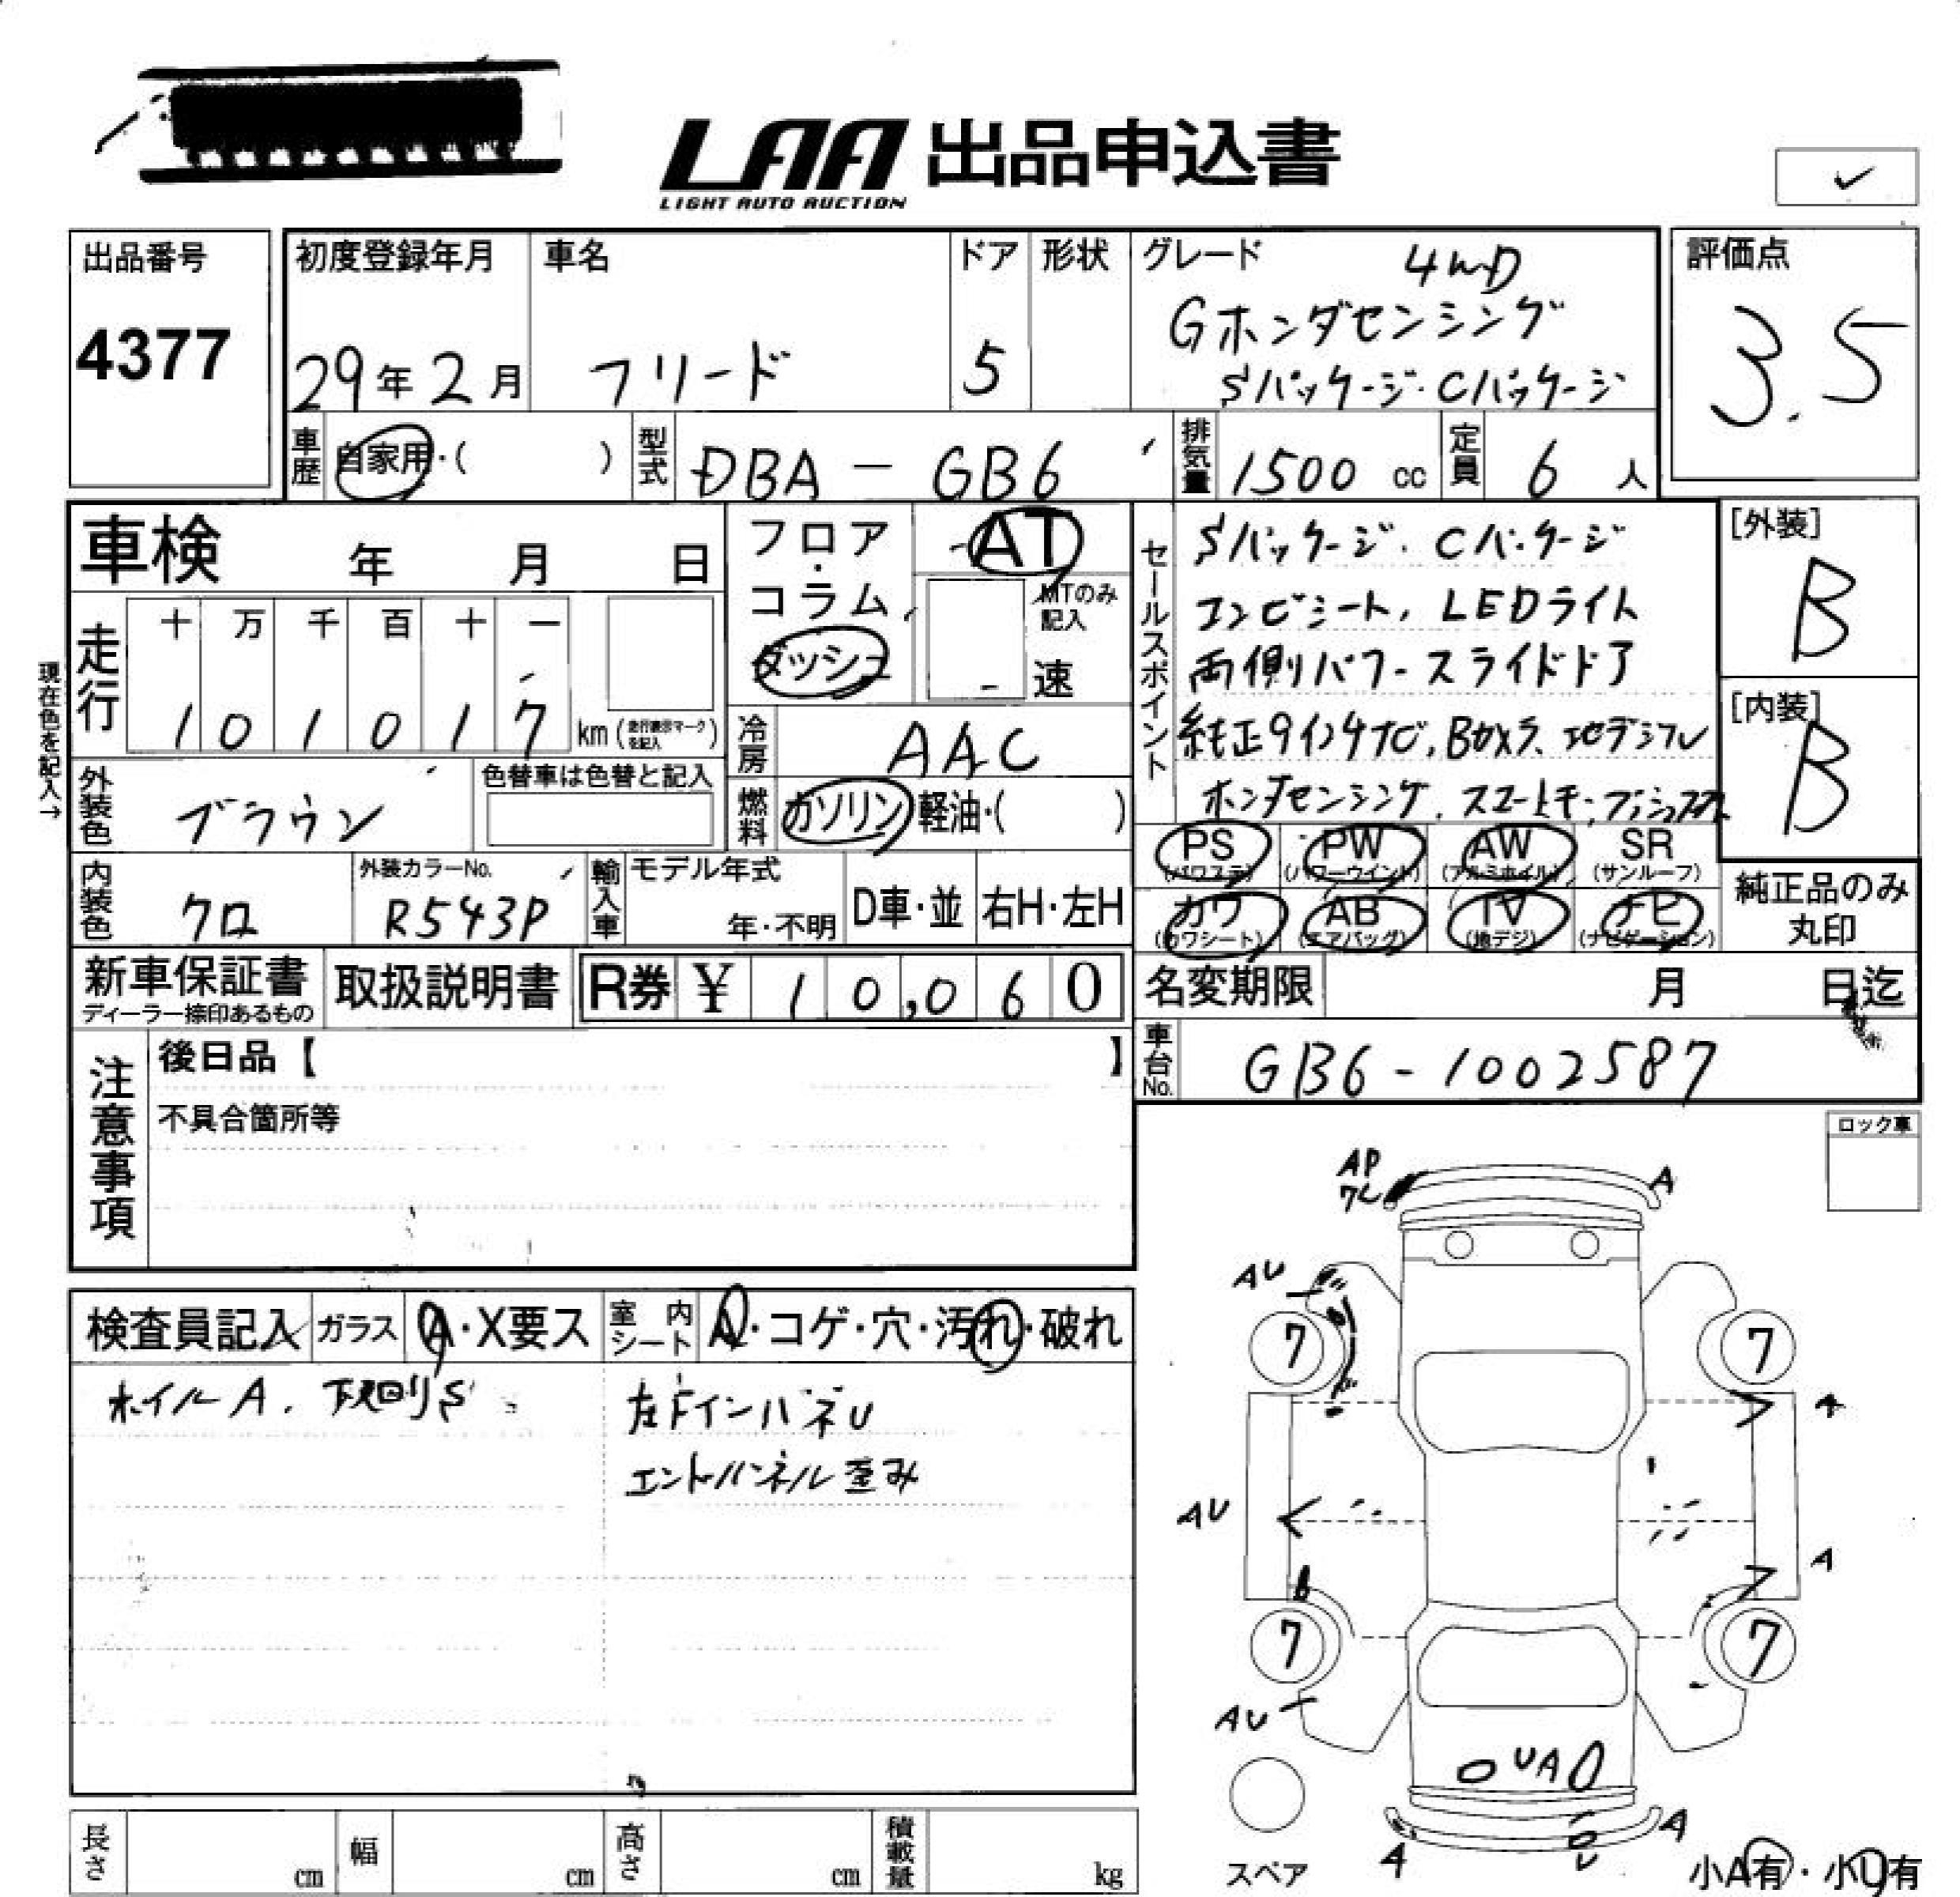 LAA 出品申込書
LIGHT AUTO AUCTION
✓
出品番号
4377
初度登録年月
29年2月
車名
フリード
ドア
5
形状
グレード
4WD
Gホンダセンシング
Sパッケージ・Cパッケージ
評価点
3.5
車歴
自家用・( )
型式
DBA-GB6
排気量
1500 cc
定員
6 人
車検 年 月 日
現在色を記入→
走行
十 万 千 百 十 一
1 0 1 0 1 7
km(走行表示マークを記入)
フロア・コラム
ダッシュ
AT
MTのみ記入
速
冷房
AAC
燃料
ガソリン 軽油・( )
セールスポイント
Sパッケージ、Cパッケージ
コンビシート、LEDライト
両側パワースライドドア
純正9インチナビ、Bカメラ、地デジフル
ホンダセンシング、スマートキー、プッシュスタート
[外装]
B
[内装]
B
外装色
ブラウン
色替車は色替と記入
内装色
クロ
外装カラーNo.
R543P
輸入車
モデル年式
年・不明
D車・並
右H・左H
PS
(パワステ)
PW
(パワーウインド)
AW
(アルミホイル)
SR
(サンルーフ)
カワ
(カワシート)
AB
(エアバッグ)
TV
(地デジ)
ナビ
(ナビゲーション)
純正品のみ
丸印
新車保証書
ディーラー捺印あるもの
取扱説明書
R券 ¥ 10,060
名変期限 月 日迄
車台No.
GB6-1002587
注意事項
後日品【 】
不具合箇所等
ロック車
検査員記入
ガラス
A・X要ス
室内シート
A・コゲ・穴・汚れ・破れ
ホイルA、下回りS
左FインパネU
エンドパネル歪み
AP
A
AU
7
7
A
AU
A
7
7
AU
UA
A
U
A
スペア
小A有・小U有
長さ
cm
幅
cm
高さ
cm
積載量
kg